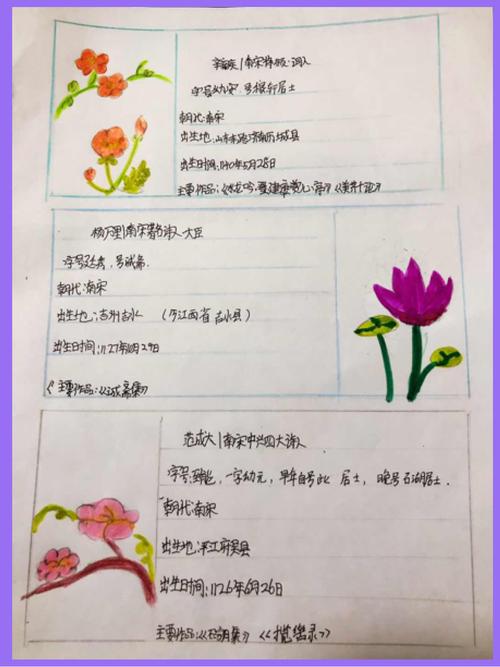 辛弃疾|南宋将领·词人
字号幼安、号稼轩居士
朝代:南宋
出生地:山东东路济南历城县
出生时间:1140年5月28日
主要作品:《水龙吟·登建康赏心亭》《美芹十论》
杨万里|南宋著名诗人 大臣
字号廷秀,号诚斋.
朝代:南宋
出生地:吉州吉水 (今江西省吉水县)
出生时间:1127年10月29日
《主要作品:《诚斋集》
范成大|南宋中兴四大诗人
字号:致能,一字幼元,早年自号此 居士,晚号石湖居士.
朝代:南宋
出生地:平江府吴县
出生时间:1126年6月26日
主要作品:《石湖集》《揽辔录》